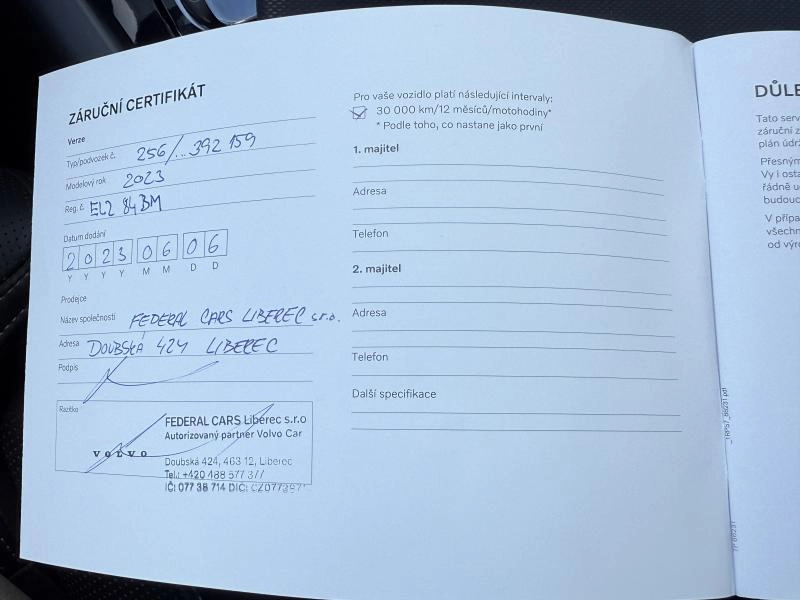 ZÁRUČNÍ CERTIFIKÁT
Verze
Typ/podvozek č. 256/...392 159
Modelový rok 2023
Reg. č. EL2 84BM
Datum dodání
2 0 2 3 0 6 0 6
Y Y Y Y M M D D
Prodejce
Název společnosti FEDERAL CARS LIBEREC s.r.o.
Adresa DOUBSKÁ 424 LIBEREC
Podpis
Razítko
FEDERAL CARS Liberec s.r.o
Autorizovaný partner Volvo Car
VOLVO
Doubská 424, 463 12, Liberec
Tel.: +420 488 577 377
IČ: 077 38 714 DIČ:
Pro vaše vozidlo platí následující intervaly:
30 000 km/12 měsíců/motohodiny*
* Podle toho, co nastane jako první
1. majitel
Adresa
Telefon
2. majitel
Adresa
Telefon
Další specifikace
DŮLE
Tato serv
záruční z
plán údrž
Přesným
Vy i osta
řádně u
budouc
V přípa
všechn
od výro